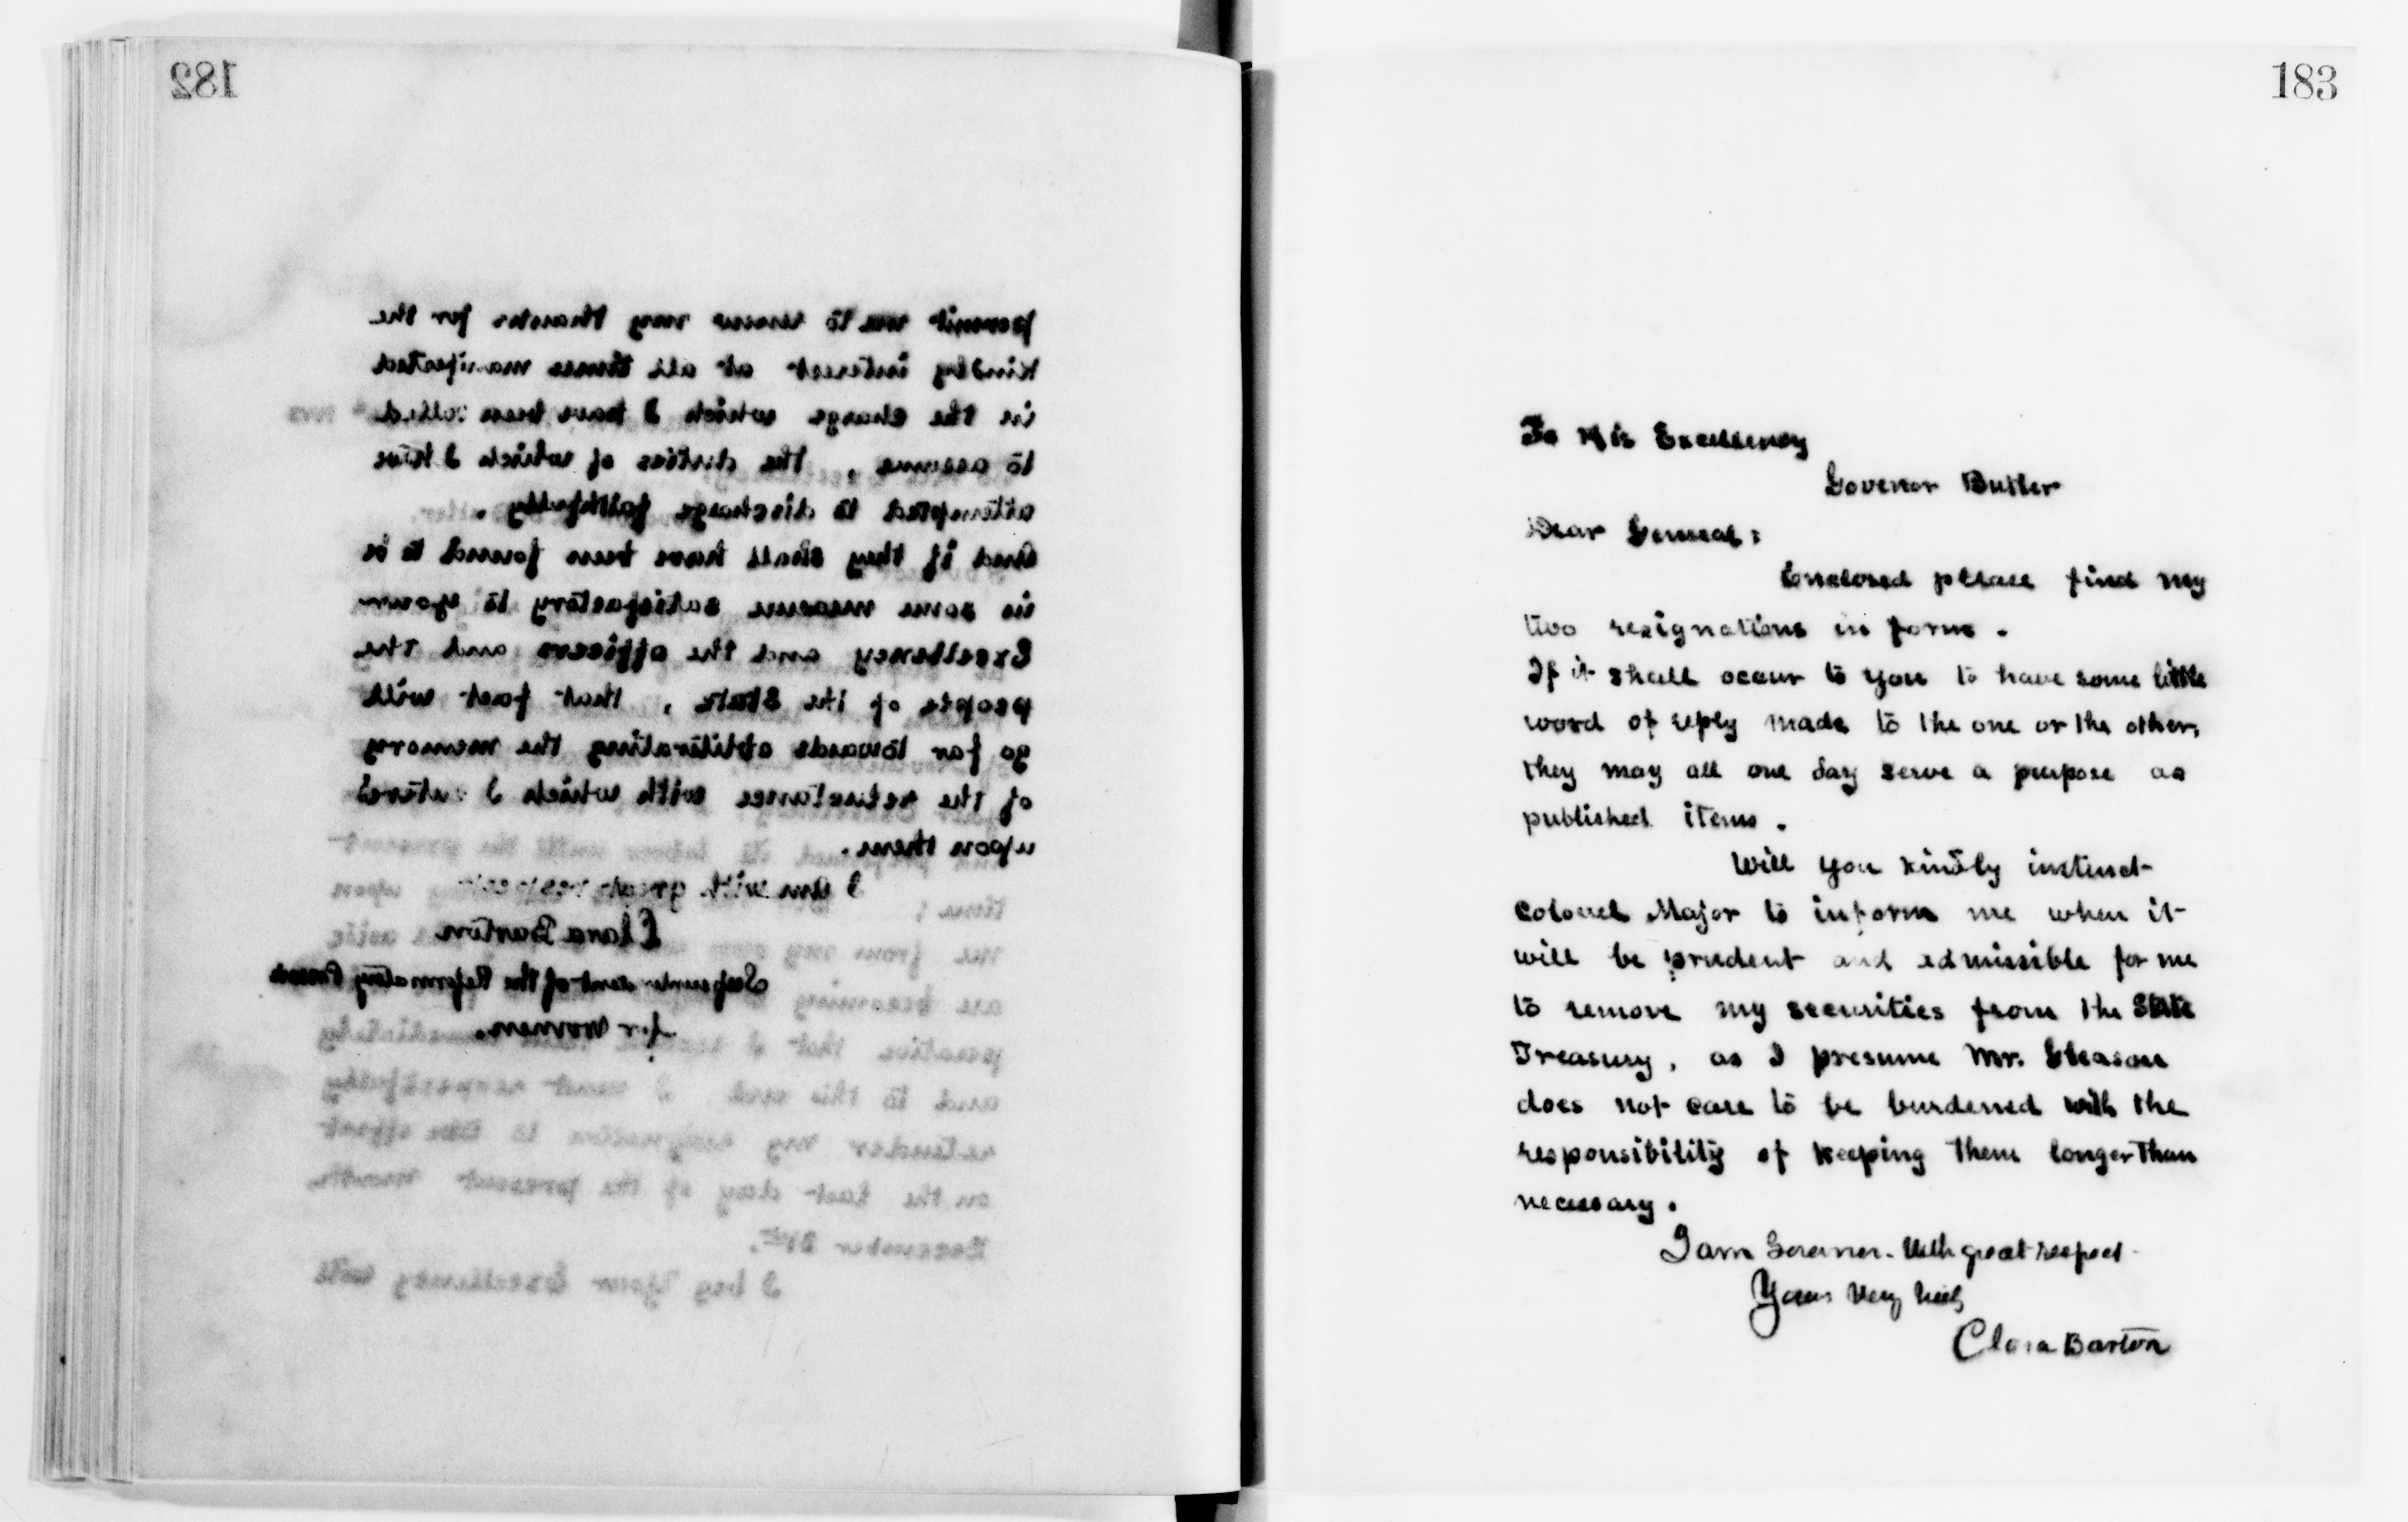 182
permit me to renew my thanks for the
kindly interest at all times manifested
in the charge which I have been called
to assume, the duties of which I have
attempted to discharge faithfully.
And if they shall have been found to be
in some measure satisfactory to your
Excellency and the officers and the
people of the State, that fact will
go far towards obliterating the memory
of the reluctance with which I entered
upon them.
I am with great respect
Clara Barton
Superintendent of the Reformatory Prison
for women.
183
To His Excellency
Govenor Butler
Dear General:
Enclosed please find my
two resignations in form.
If it shall occur to you to have some little
word of reply made to the one or the other,
they may all one day serve a purpose as
published items.
Will you kindly instruct
Colonel Major to inform me when it
will be prudent and admissible for me
to remove my securities from the State
Treasury, as I presume Mr. Gleason
does not care to be burdened with the
responsibility of keeping them longer than
necessary.
I am Governor. With great respect
Yours Very truly
Clara Barton